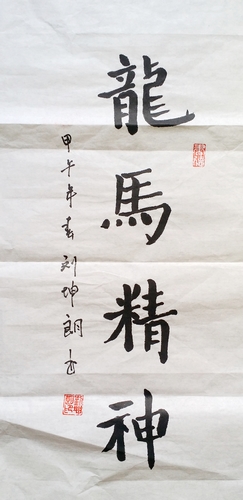 龍馬精神
甲午年春刘坤朗书